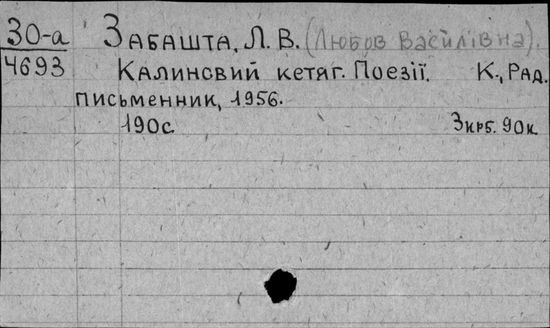 30-а ЗАБАШТА, Л. В. (Любов Василівна).
4693 КАЛИНОВИЙ КЕТЯГ. ПОЕЗІЇ. К., РАД.
ПИСЬМЕННИК, 1956.
190с. 3 крб. 90к.